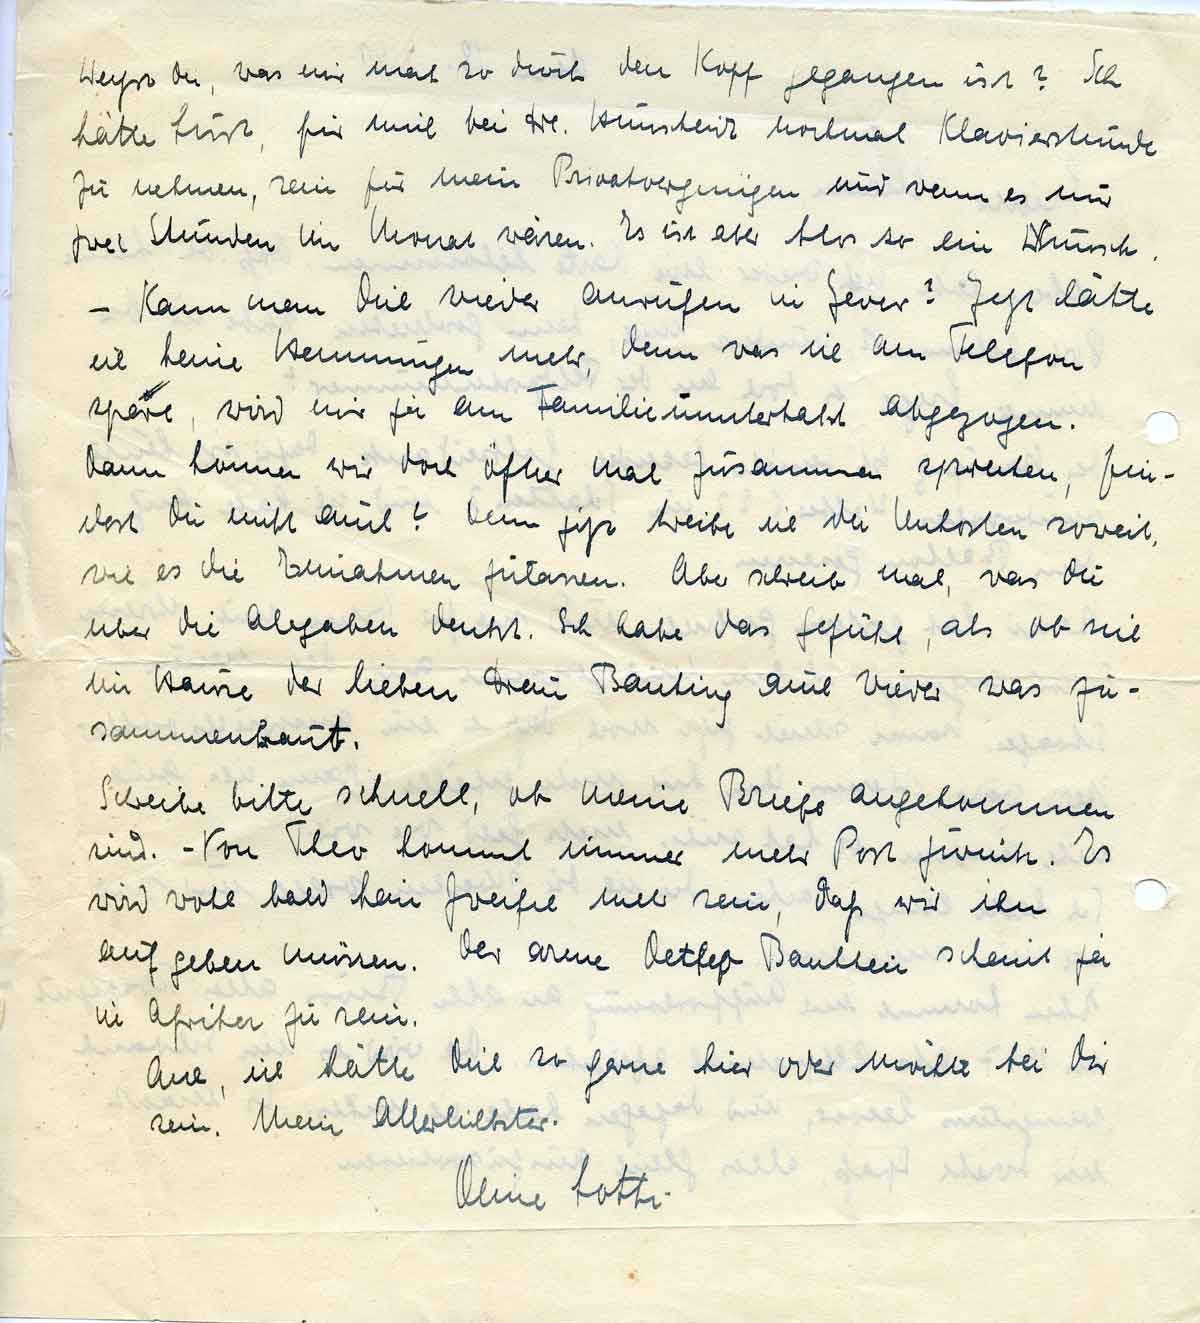 Weißt Du, was mir mal so durch den Kopf gegangen ist? Ich
hätte Lust, für mich bei Frl. Hunscheidt nochmal Klavierstunde
zu nehmen, rein für mein Privatvergnügen und wenn es nur
zwei Stunden im Monat wären. Es ist aber blos so ein Wunsch.
– Kann man Dich wieder anrufen in Jever? Jetzt hätte
ich keine Hemmungen mehr, denn was ich am Telefon
spare, wird mir ja am Familienunterhalt abgezogen.
Dann können wir doch öfter mal zusammen sprechen, fin-
dest Du nicht auch? Denn jetzt treibe ich die Unkosten soweit,
wie es die Einnahmen zulassen. Aber schreib mal, was Du
über die Abgaben denkst. Ich habe das Gefühl, als ob sich
im Hause der lieben Frau Banting auch wieder was zu-
sammenbraut.
Schreibe bitte schnell, ob meine Briefe angekommen
sind. – Von Theo kommt immer mehr Post zurück. Es
wird wohl bald kein Zweifel mehr sein, daß wir ihn
aufgeben müssen. Der arme Detlef scheint ja
in Afrika zu sein.
Ach, ich hätte Dich so gerne hier oder möchte bei Dir
sein. Mein Allerliebster.
Deine Lotti.